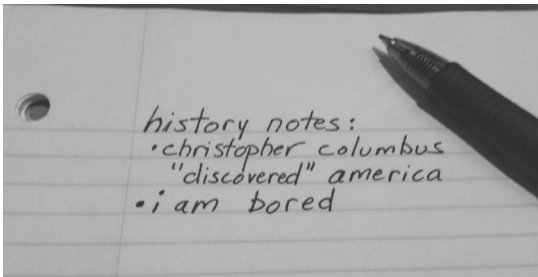 history notes:
• christopher columbus
"discovered" america
• i am bored